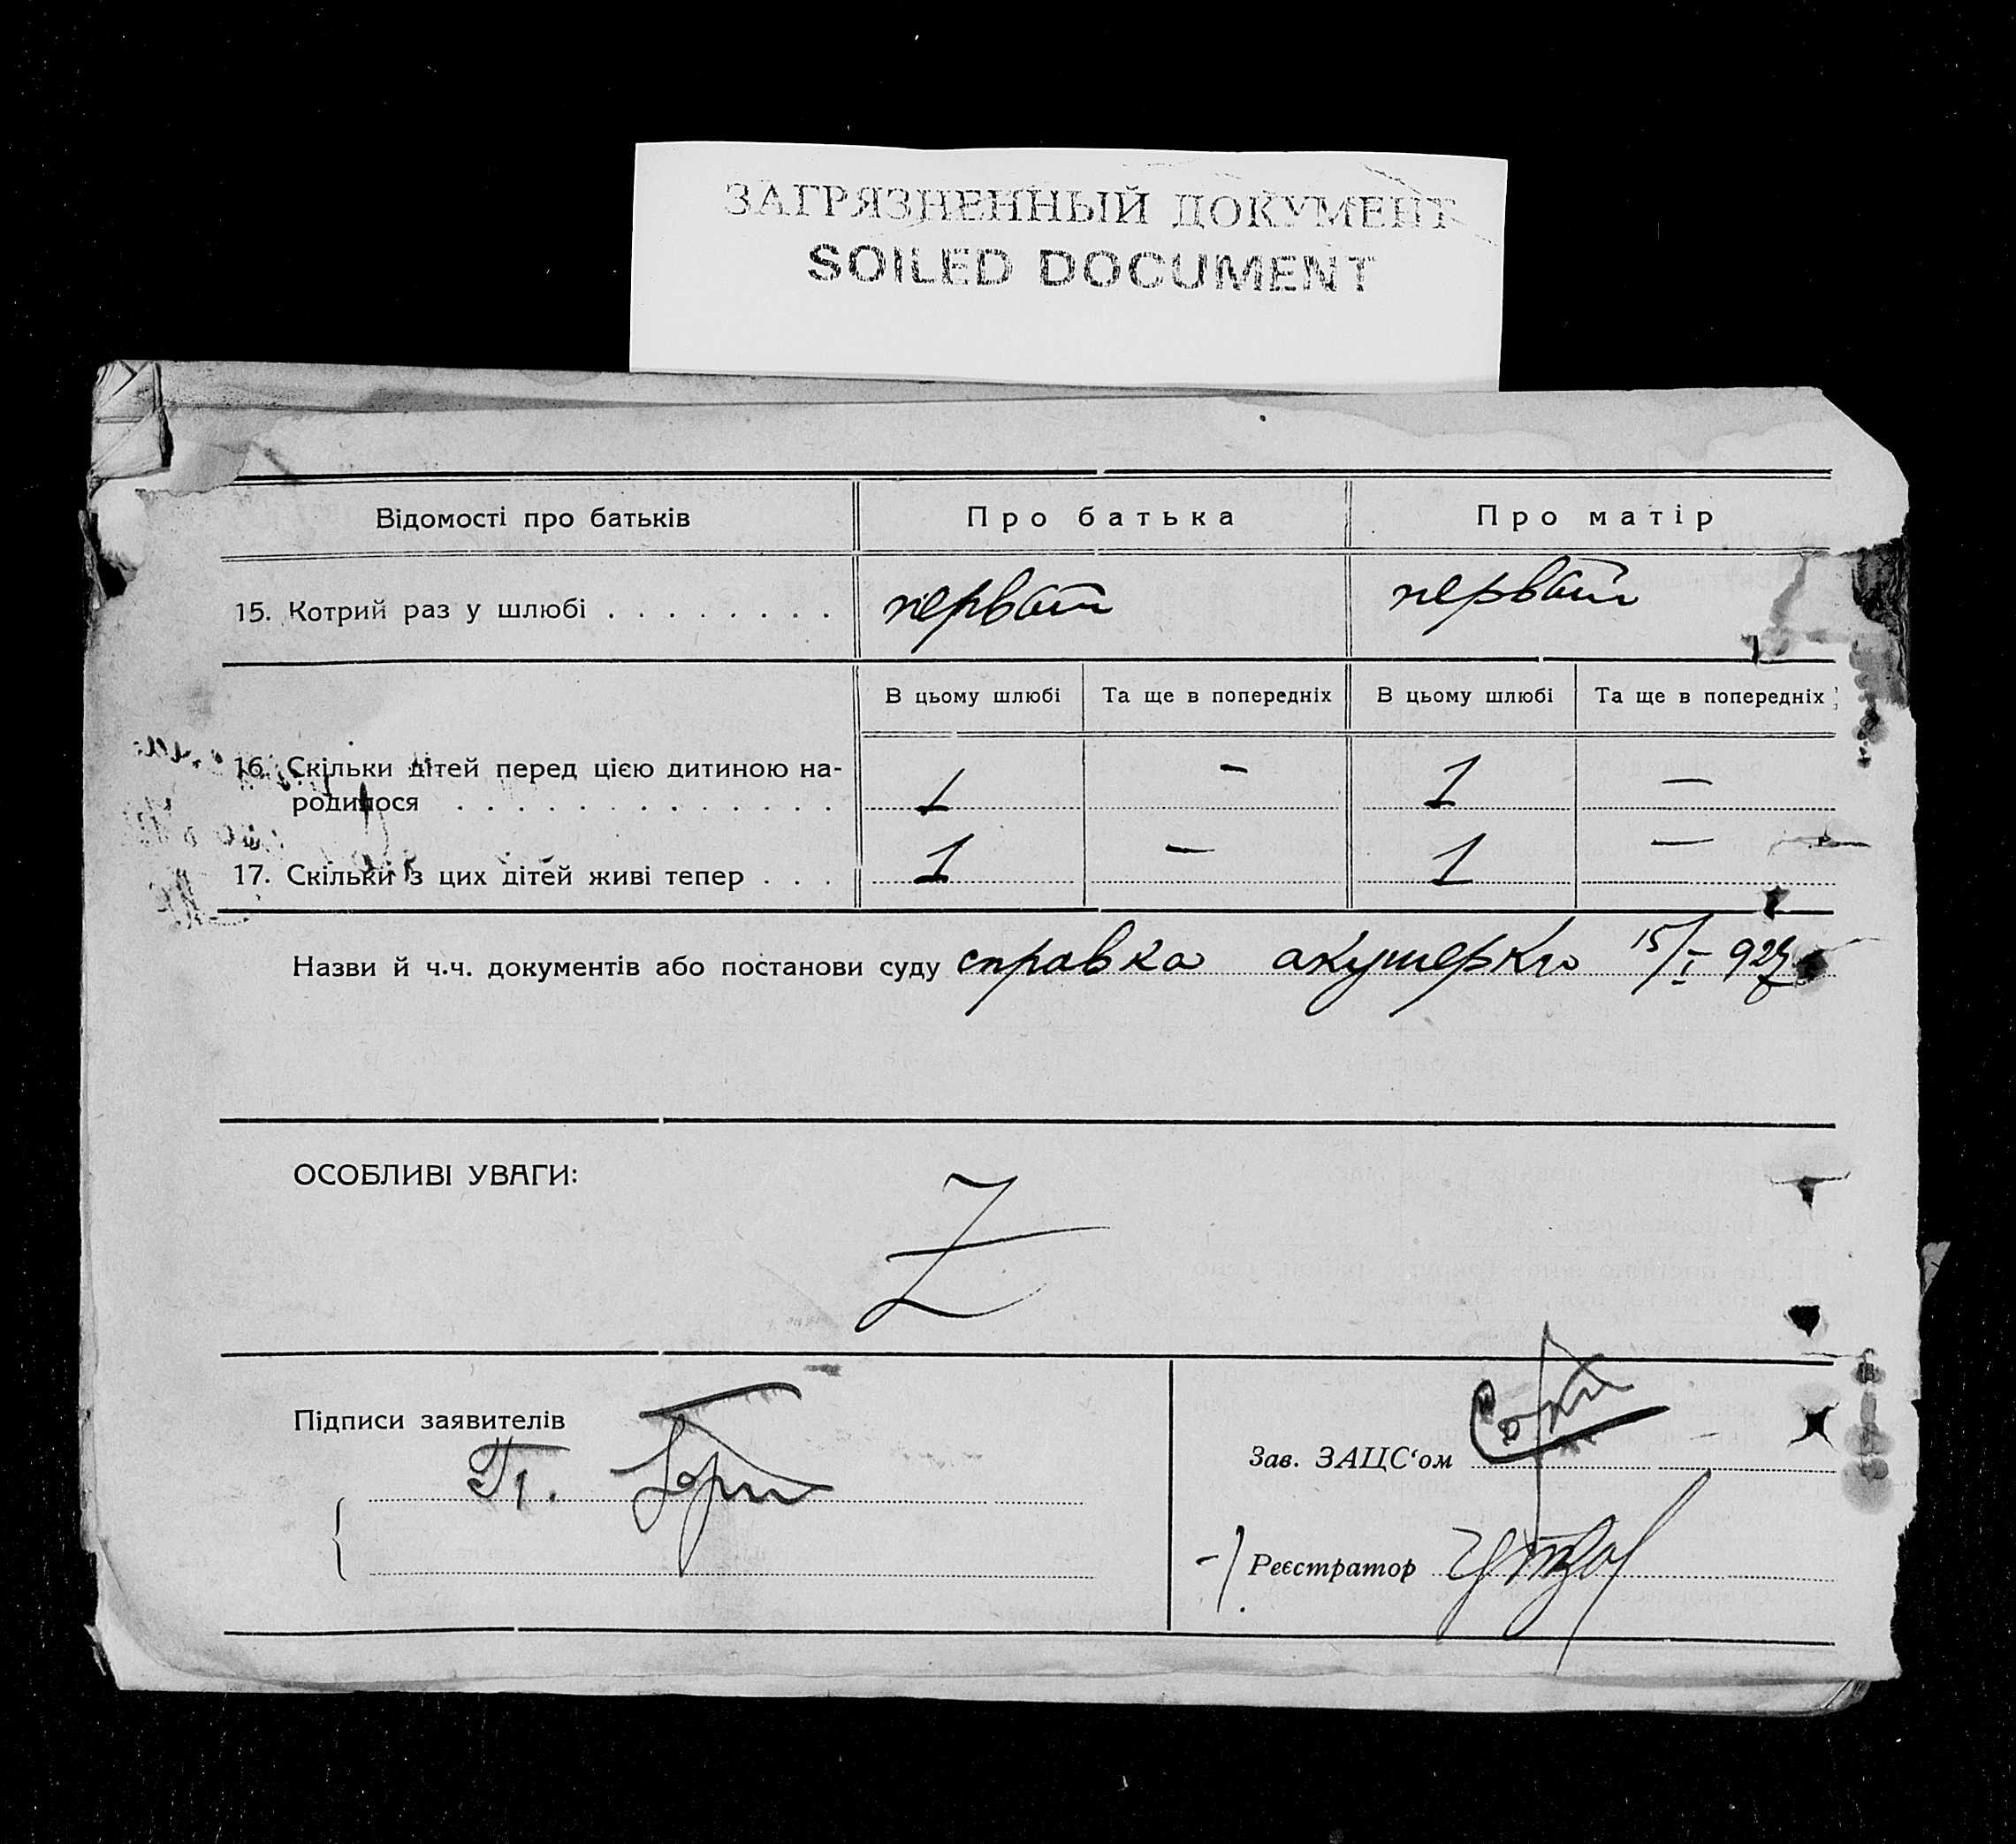 ЗАГРЯЗНЕННЫЙ ДОКУМЕНТ
SOILED DOCUMENT
Відомості про батьків Про батька Про матір
15. Котрий раз у шлюбі . . . . . . . . первый первый
В цьому шлюбі Та ще в попередніх В цьому шлюбі Та ще в попередніх
16. Скільки дітей перед цією дитиною на-
родилося . . . . . . . . . . . . . 1 — 1 —
17. Скільки з цих дітей живі тепер . . . 1 — 1 —
Назви й ч.ч. документів або постанови суду справка акушерки 15/I 927
ОСОБЛИВІ УВАГИ:
Z
Підписи заявителів
Зав. ЗАЦС‘ом
Реєстратор